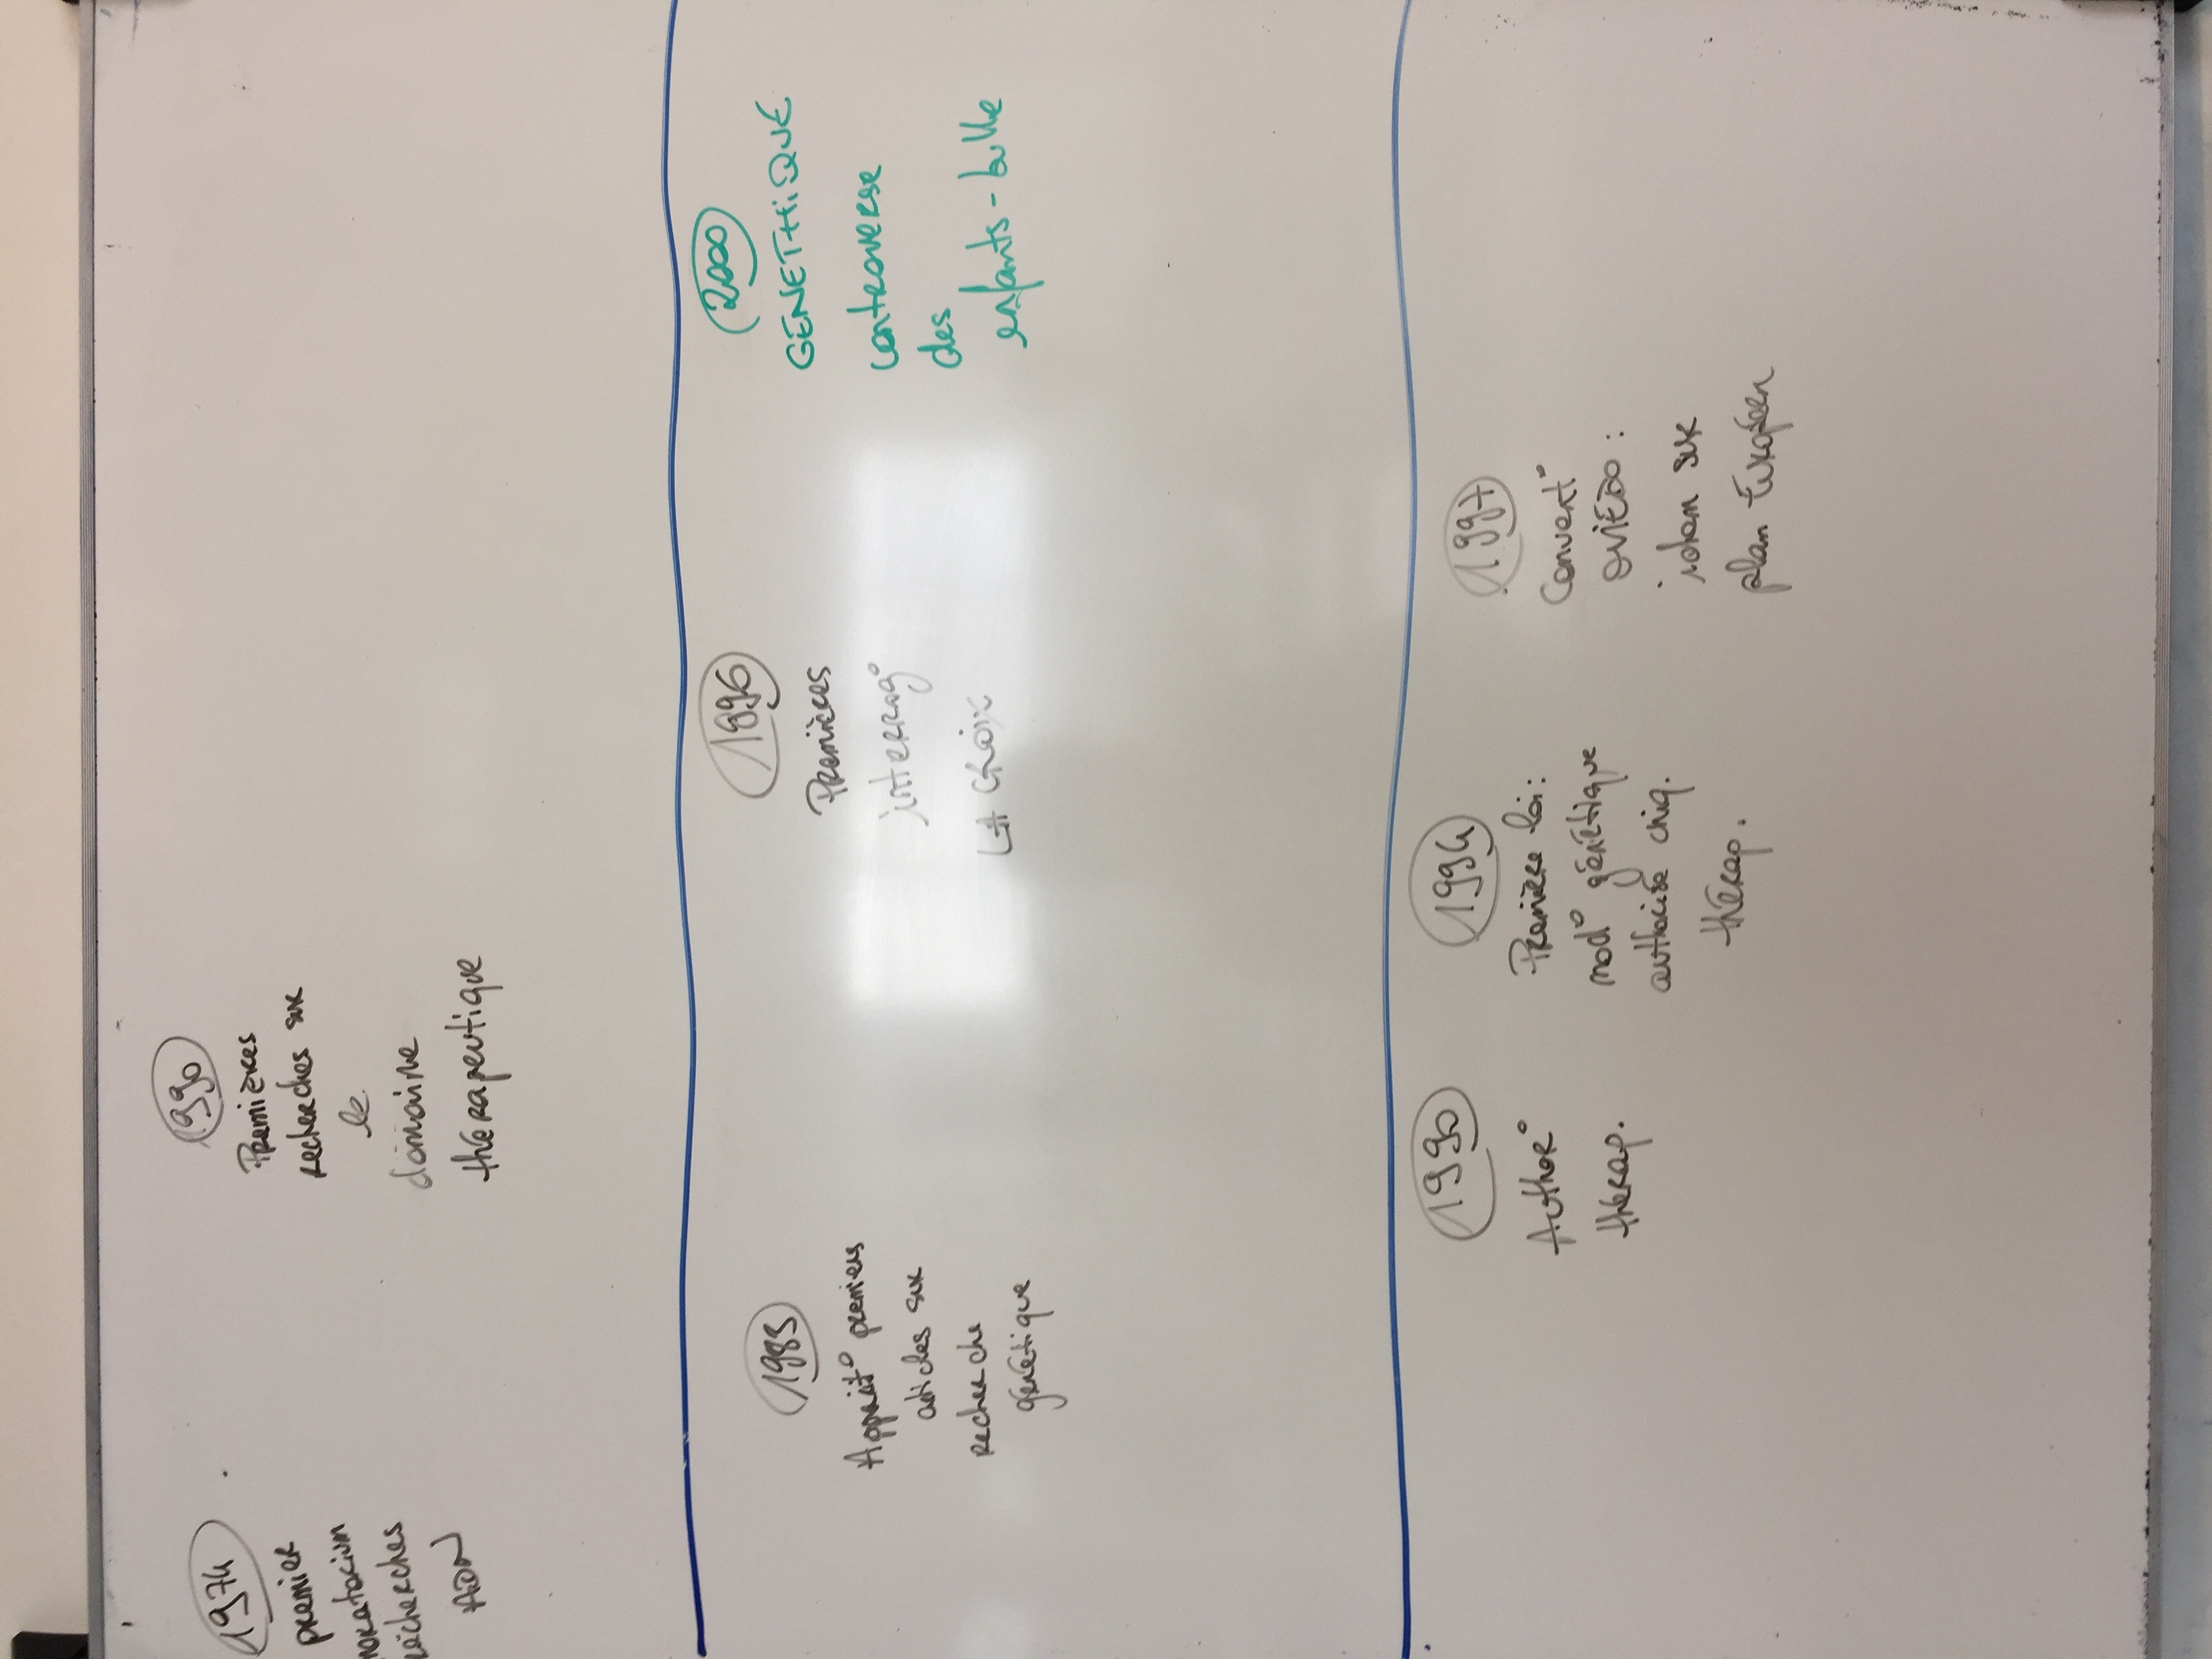 1974
premier
moratorium
recherches
ADN
1990
Premières
recherches sur
le
domaine
thérapeutique
1983
Apparit° premiers
articles sur
recherche
génétique
1996
Premières
interrog°
LA CROIX
2000
GÉNETHIQUE
controverse
des
enfants-bulle
1990
Author°
thérap.
1994
Première loi:
mod° génétique
authorisé
thérap.
1997
Convent°
OVIEDO :
idem sur
plan Européen